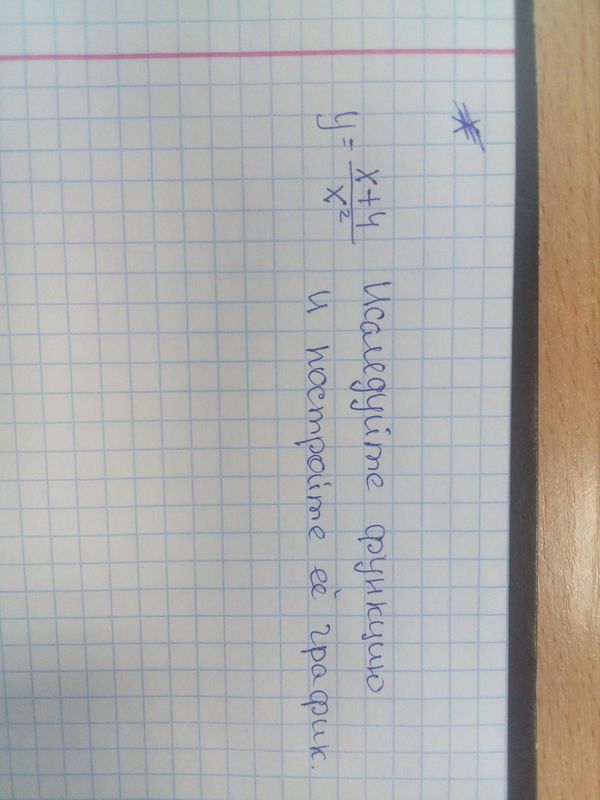 *
y = x+4 / x² Исследуйте функцию
и постройте её график.